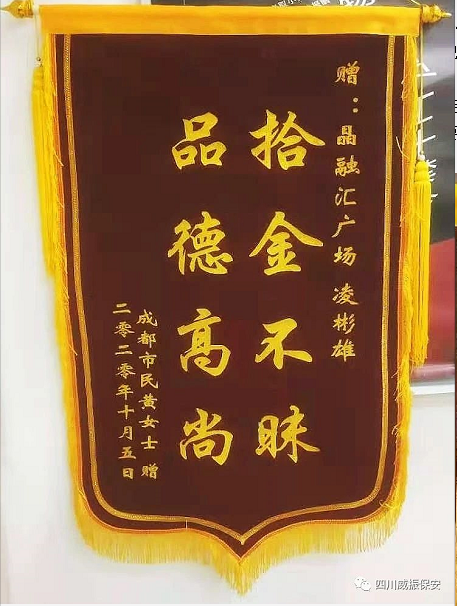 赠：晶融汇广场 凌彬雄
拾金不昧
品德高尚
成都市民黄女士 赠
二零二零年十月五日
四川威振保安